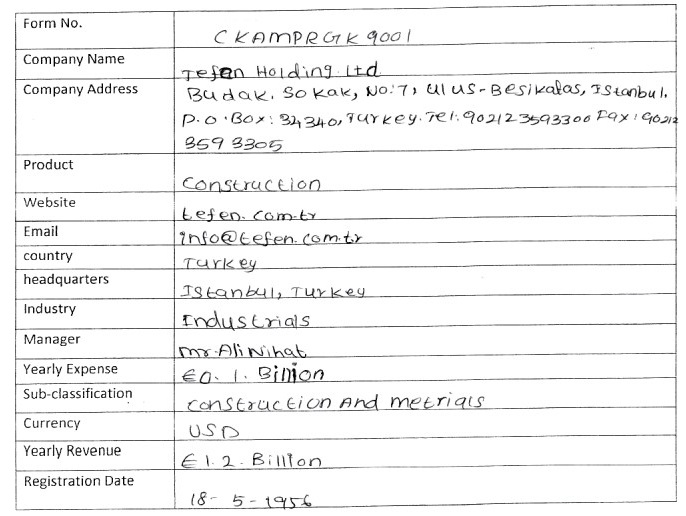 Form No. CKAMPRGK9001
Company Name Tefen Holding. Ltd
Company Address Budak. Sokak, No:7, Ulus-Besikatas, Istanbul.
P.O.Box: 34340, Turkey. Tel: 902123593300 Fax: 90212
3593305
Product Construction
Website tefen.com.tr
Email info@tefen.com.tr
country Turkey
headquarters Istanbul, Turkey
Industry Industrials
Manager mr.Ali Nihat
Yearly Expense €0.1.Billion
Sub-classification construction And metrials
Currency USD
Yearly Revenue €1.2.Billion
Registration Date 18-5-1956